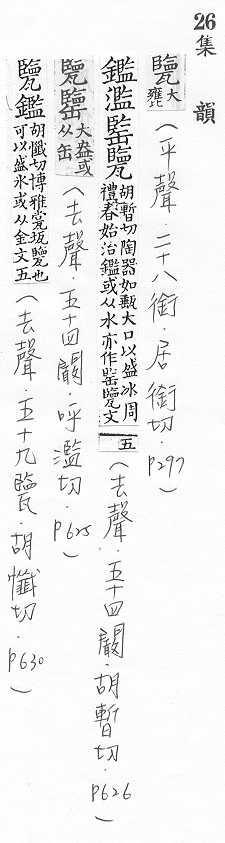 26
集韻
㽉大甕（平聲．二十八銜．居銜切．P297）
鑑濫㽉胡暫切陶器如甀大口以盛冰周禮春始治鑑或从水亦作㽉文五（去聲．五十四闞．胡暫切．P626）
㽉大盎或从缶（去聲．五十四闞．呼濫切．P625）
㽉鑑胡懺切博雅瓽瓨㽉也可以盛水或从金文五（去聲．五十九鑑．胡懺切．P630）